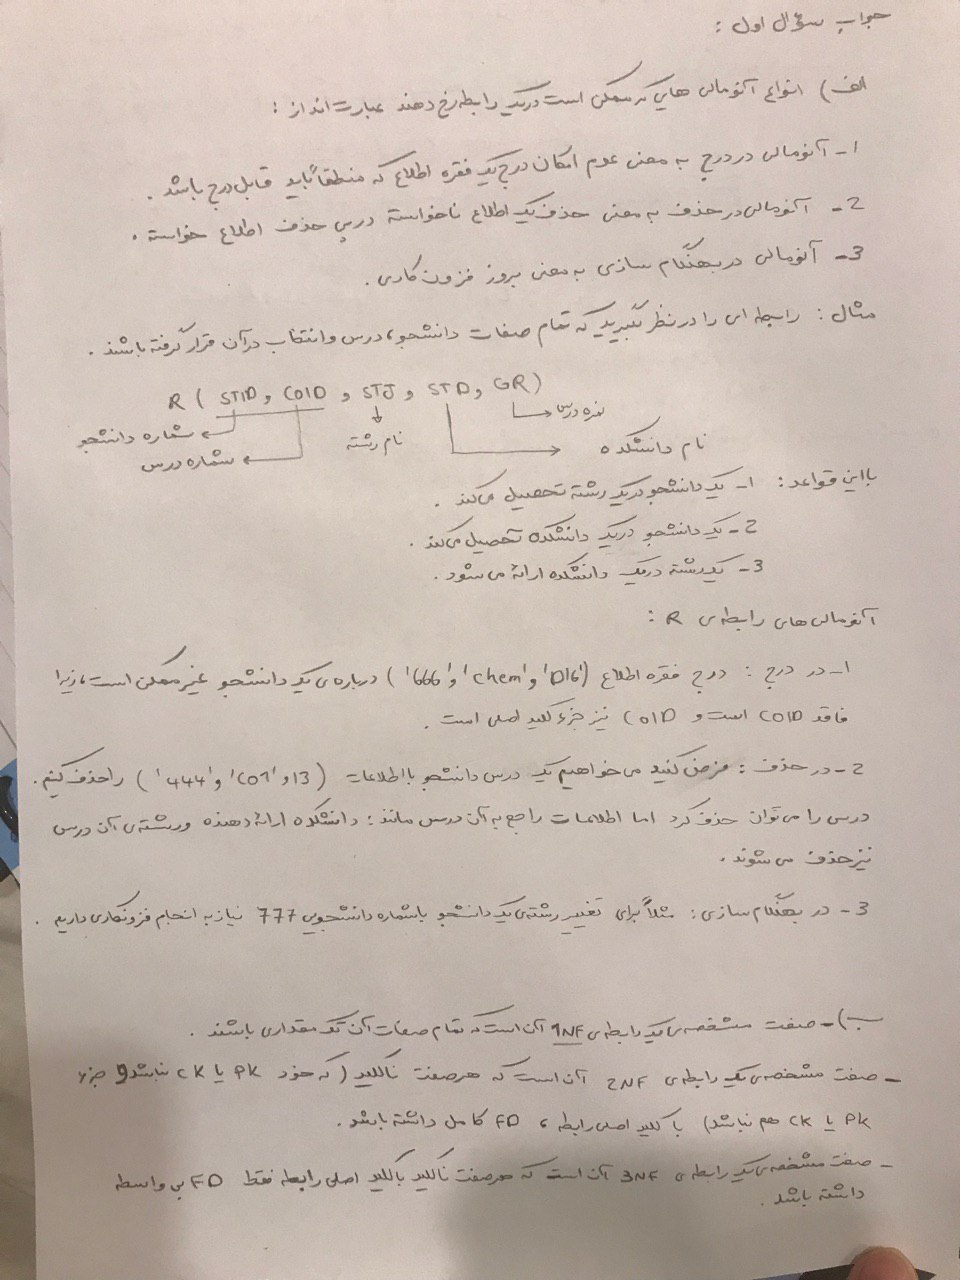 جواب سؤال اول :
الف) انواع آنومالی هایی که ممکن است در یک رابطه رخ دهند عبارت اند از :
1- آنومالی در درج به معنی عدم امکان درج یک فقره اطلاع که منطقاً باید قابل درج باشد .
2- آنومالی در حذف به معنی حذف یک اطلاع ناخواسته در پی حذف اطلاع خواسته .
3- آنومالی در بهنگام سازی به معنی بروز فزون کاری .
مثال : رابطه ای را در نظر بگیرید که تمام صفات دانشجو، درس و انتخاب در آن قرار گرفته باشند .
R ( STID , COID , STJ , STD , GR )
نمره درس
شماره دانشجو نام رشته نام دانشکده
شماره درس
با این قواعد : 1- یک دانشجو در یک رشته تحصیل می‌کند .
2- یک دانشجو در یک دانشکده تحصیل می‌کند .
3- یک رشته در یک دانشکده ارائه می شود .
آنومالی های رابطه‌ی R :
1- در درج : درج فقره اطلاع ('666' و 'chem' و 'D16') درباره‌ی یک دانشجو غیر ممکن است، زیرا
فاقد COID است و COID نیز جزء کلید اصلی است .
2- در حذف : فرض کنید می خواهیم یک درس دانشجو با اطلاعات ('444' و 'CO1' و 13) را حذف کنیم .
درس را می‌توان حذف کرد اما اطلاعات راجع به آن درس مانند : دانشکده ارائه دهنده و رشته‌ی آن درس
نیز حذف می شوند .
3- در بهنگام سازی : مثلاً برای تغییر رشته‌ی یک دانشجو با شماره دانشجویی 777 نیاز به انجام فزونکاری داریم .
ب) - صفت مشخصه‌ی یک رابطه‌ی 1NF آن است که تمام صفات آن تک مقداری باشند .
- صفت مشخصه‌ی یک رابطه‌ی 2NF آن است که هر صفت ناکلید ( که خود PK یا CK نباشد و جزء
PK یا CK هم نباشد) با کلید اصلی رابطه ، FD کامل داشته باشد .
- صفت مشخصه‌ی یک رابطه‌ی 3NF آن است که هر صفت ناکلید با کلید اصلی رابطه فقط FD بی واسطه
داشته باشد .